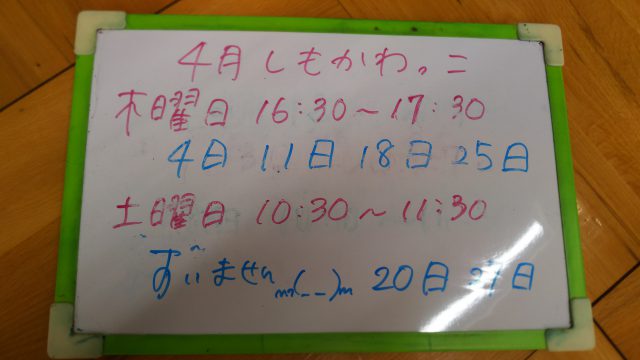 4月しもかわっこ
木曜日 16:30～17:30
4日 11日 18日 25日
土曜日 10:30～11:30
すいません m(__)m 20日 27日